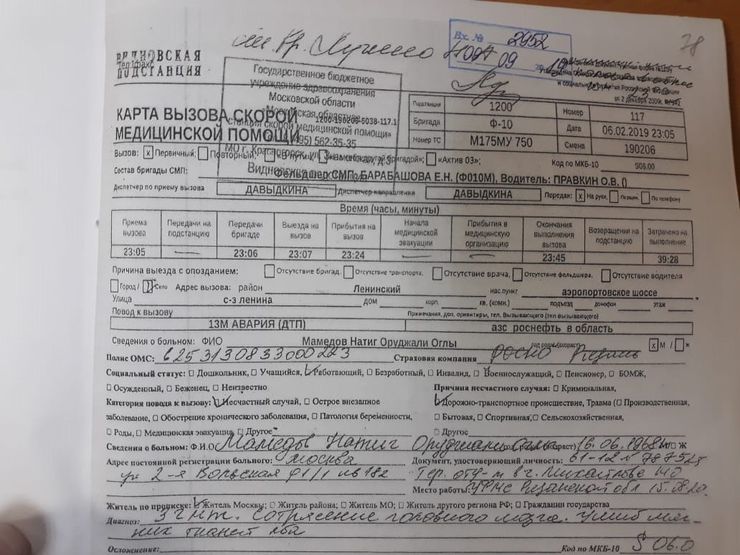 78
Вх. № 2952
ВИДНОВСКАЯ
ПОДСТАНЦИЯ
Государственное бюджетное
учреждение здравоохранения
Московской области
«Московская областная
станция скорой медицинской помощи»
КАРТА ВЫЗОВА СКОРОЙ
МЕДИЦИНСКОЙ ПОМОЩИ
Подстанция 1200 Номер 117
Бригада Ф-10 Дата 06.02.2019 23:05
Номер ТС М175МУ 750 Смена 190206
Вызов: x Первичный; Повторный; «Актив 03»; Код по МКБ-10 S06.00
Состав бригады СМП: Фельдшер СМП, БАРАБАШОВА Е.Н. (Ф010М), Водитель: ПРАВКИН О.В. ()
Диспетчер по приему вызова ДАВЫДКИНА Диспетчер направления ДАВЫДКИНА Передан: x На руки, Письмен. По телефону
Время (часы, минуты)
Приема вызова Передачи на подстанцию Передачи бригаде Выезда на вызов Прибытия на вызов Начала медицинской эвакуации Прибытия в медицинскую организацию Окончания выполнения вызова Возвращения на подстанцию Затрачено на выполнение
23:05 — 23:06 23:07 23:24 — — 23:45 39:28
Причина выезда с опозданием: Отсутствие бригад. Отсутствие транспорта. Отсутствие врача, Отсутствие фельдшера. Отсутствие водителя
Город / Село Адрес вызова: район Ленинский нас.пункт аэропортовское шоссе
Улица с-з ленина дом корп. кв. (комн.) подъезд домофон этаж
Повод к вызову Примечания, доп. ориентиры, тел. Вызывающего (тел.)
13М АВАРИЯ (ДТП) азс роснефть в область
Сведения о больном: ФИО Мамедов Натиг Оруджали Оглы x М / Ж
Полис ОМС: 6253130833000223 Страховая компания РОСНО
Социальный статус: Дошкольник, Учащийся, Работающий, Безработный, Инвалид, Военнослужащий, Пенсионер, БОМЖ,
Осужденный, Беженец, Неизвестно Причина несчастного случая: Криминальная,
Категория повода к вызову: Несчастный случай, Острое внезапное Дорожно-транспортное происшествие, Травма (Производственная,
заболевание, Обострение хронического заболевания, Патология беременности, Бытовая, Спортивная, Сельскохозяйственная,
Роды, Медицинская эвакуация, Другое Другое
Сведения о больном: Ф.И.О. Мамедов Натиг Оруджали Оглы 16.06.1968 Ж
Адрес постоянной регистрации больного г Москва Документ, удостоверяющий личность:
ул 2-я Вольская д1/1 кв 182
Место работы: УФМС Рязанской обл
Житель по прописке: Житель Москвы; Житель района; Житель МО; Житель другого региона РФ; Гражданин государства
Диагноз: ЗЧМТ. Сотрясение головного мозга. Ушиб мягких тканей лба
Осложнение: Код по МКБ-10 S 06.0